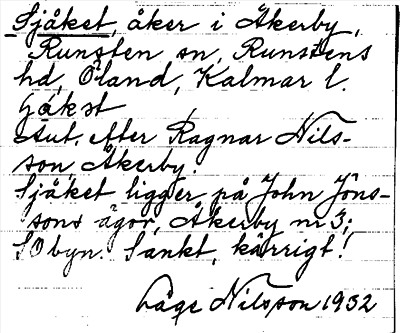 Sjåket, åker i Åkerby,
Runsten sn, Runstens
hd, Öland, Kalmar l.
Aut. efter Ragnar Nils-
son, Åkerby.
Sjåket ligger på John Jöns-
sons ägor, Åkerby nr 3;
SO byn. Sankt, kärrigt!
Låge Nilsson 1932